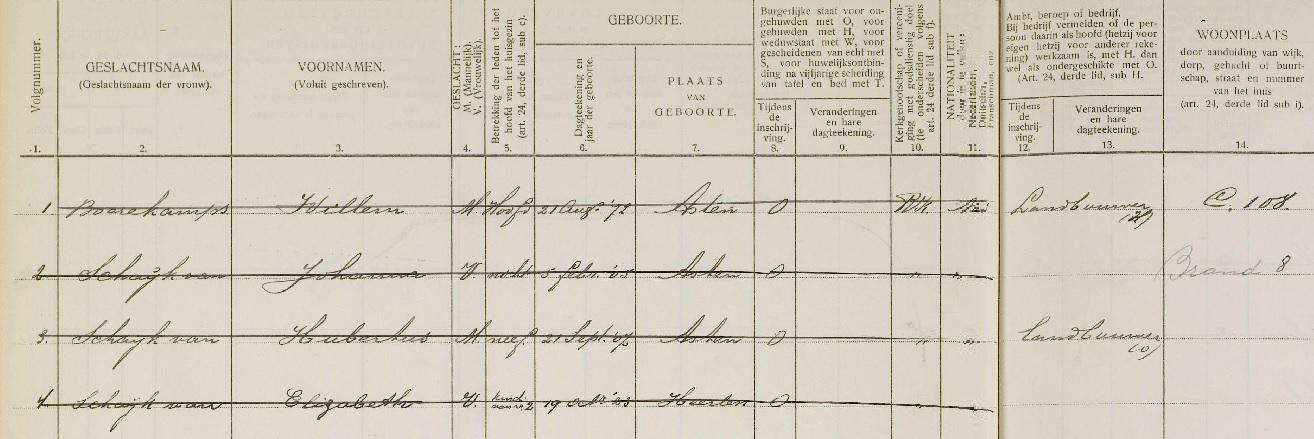 Volgnummer.
GESLACHTSNAAM.
(Geslachtsnaam der vrouw).
VOORNAMEN.
(Voluit geschreven).
GESLACHT:
M. (Mannelijk).
V. (Vrouwelijk).
Betrekking der leden tot het
hoofd van het huisgezin
(art. 24, derde lid, sub c).
GEBOORTE.
Dagteekening en
jaar der geboorte.
PLAATS
VAN
GEBOORTE.
Burgerlijke staat voor on-
gehuwden met O, voor
gehuwden met H, voor
weduwstaat met W, voor
gescheidenen van echt met
S, voor huwelijksontbin-
ding na vijfjarige scheiding
van tafel en bed met T.
Tijdens
de
inschrij-
ving.
Veranderingen
en hare
dagteekening.
Kerkgenootschap of vereeni-
ging met godsdienstig doel
(te onderscheiden volgens
art. 24 derde lid sub f).
NATIONALITEIT
Nederlander,
Duitscher,
Franschman, enz.
Ambt, beroep of bedrijf.
Bij bedrijf vermelden of de per-
soon daarin als hoofd (hetzij voor
eigen hetzij voor anderer reke-
ning) werkzaam is, met H. dan
wel als ondergeschikte met O.
(Art. 24, derde lid, sub H.
Tijdens
de
inschrij-
ving.
Veranderingen
en hare
dagteekening.
WOONPLAATS
door aanduiding van wijk,
dorp, gehucht of buurt-
schap, straat en nummer
van het huis
(art. 24, derde lid sub i).
1. 2. 3. 4. 5. 6. 7. 8. 9. 10. 11. 12. 13. 14.
1 Boerekamps Willem M. Hoofd 21 Aug. '72 Asten O RK Ned Landbouwer C. 108
(H)
2 Schayk van Johanna V. nicht 5 febr. '05 Asten O " " Brand 8
3. Schayk van Hubertus M. neef 21 Sept. Asten O " " Landbouwer
(O)
4 Schayk van Elizabeth V. kind 19 '23 Heerlen O " "
van nr 2